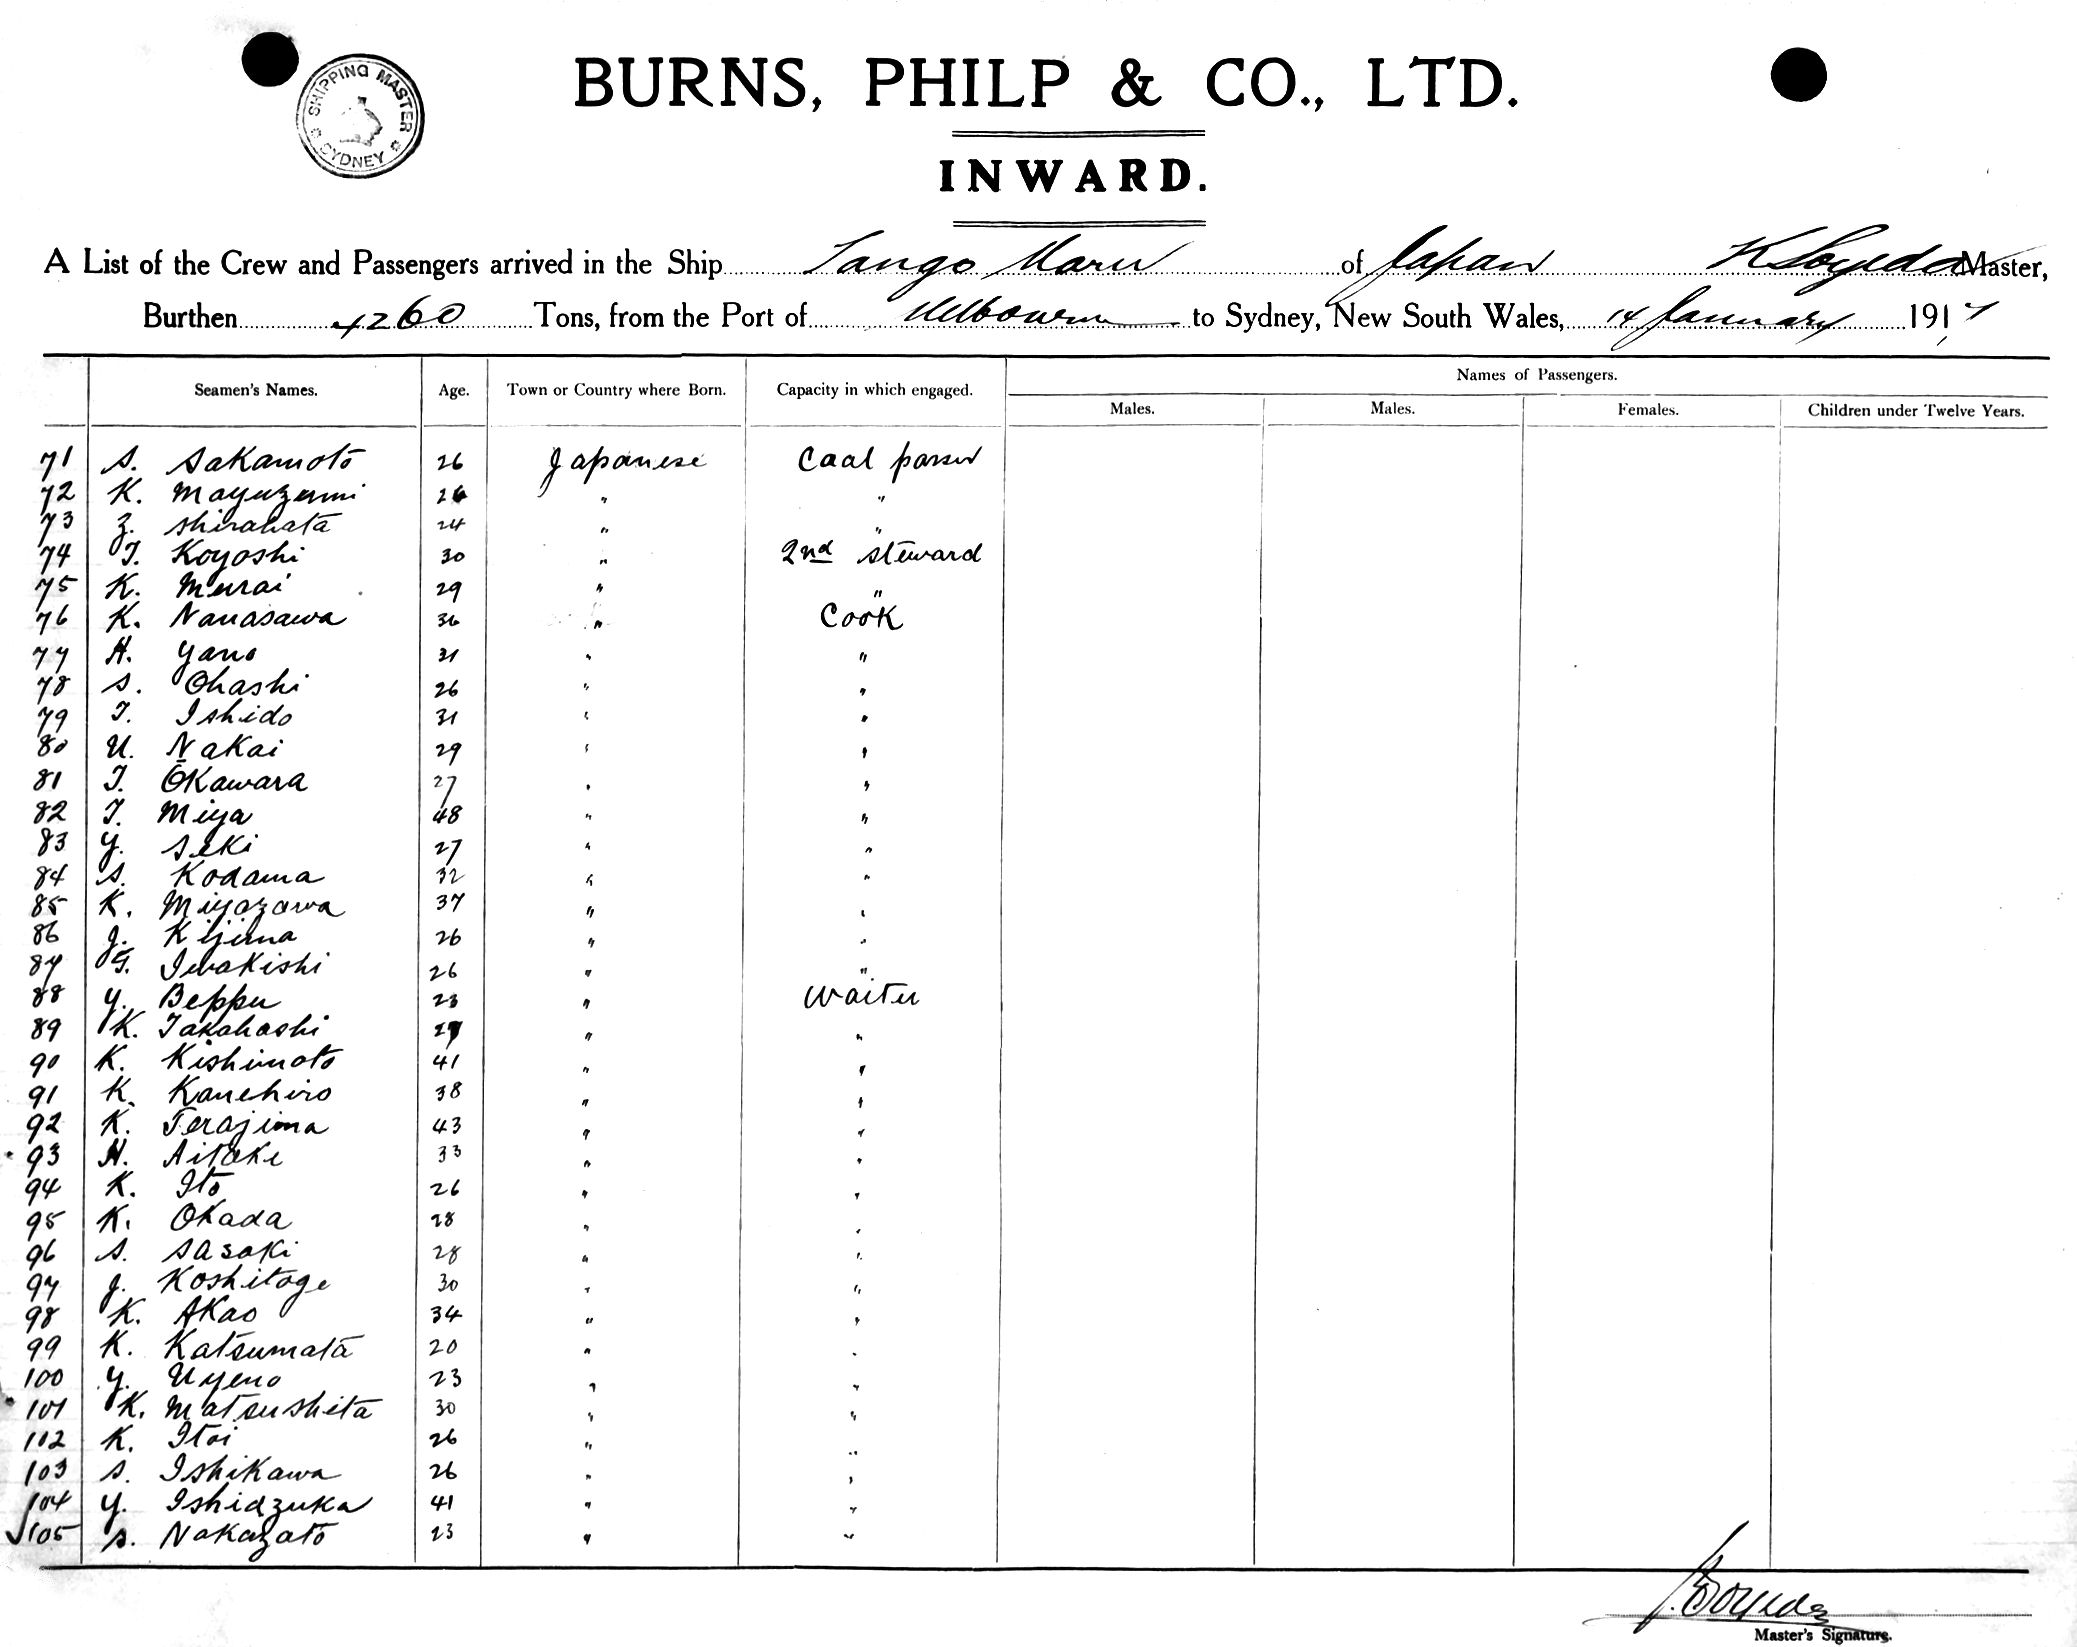 SHIPPING MASTER
SYDNEY
BURNS, PHILP & CO., LTD.
INWARD.
A List of the Crew and Passengers arrived in the Ship Tango Maru of Japan K Soyeda Master,
Burthen 4260 Tons, from the Port of Melbourne to Sydney, New South Wales, 14 January 1917
Names of Passengers.
Seamen's Names. Age. Town or Country where Born. Capacity in which engaged. Males. Males. Females. Children under Twelve Years.
71 S. Sakamoto 26 Japanese Coal passer
72 K. Mayuzumi 26 " "
73 Z. Shirahata 24 " "
74 T. Koyoshi 30 " 2nd Steward
75 K. Murai 29 " "
76 K. Nanasawa 36 " Cook
77 H. Yano 31 " "
78 S. Ohashi 26 " "
79 T. Ishido 31 " "
80 U. Nakai 29 " "
81 T. Ōkawara 27 " "
82 T. Miya 48 " "
83 Y. Seki 27 " "
84 S. Kodama 32 " "
85 K. Miyazawa 37 " "
86 J. Kijima 26 " "
87 T. Iwakishi 26 " "
88 Y. Beppu 23 " Waiter
89 K. Takahashi 27 " "
90 K. Kishimoto 41 " "
91 K. Kanehiro 38 " "
92 K. Terajima 43 " "
93 H. Aitake 33 " "
94 K. Ito 26 " "
95 K. Okada 28 " "
96 S. Sasaki 28 " "
97 J. Koshitoge 30 " "
98 K. Akao 34 " "
99 K. Katsumata 20 " "
100 Y. Uyeno 23 " "
101 K. Matsushita 30 " "
102 K. Itoi 26 " "
103 S. Ishikawa 26 " "
104 Y. Ishidzuka 41 " "
105 S. Nakazato 23 " "
K. Soyeda
Master's Signature.